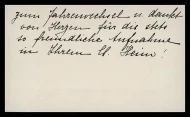 zum Jahreswechsel u. dankt
von Herzen für die stets
so freundliche Aufnahme
in Ihrem Heim!